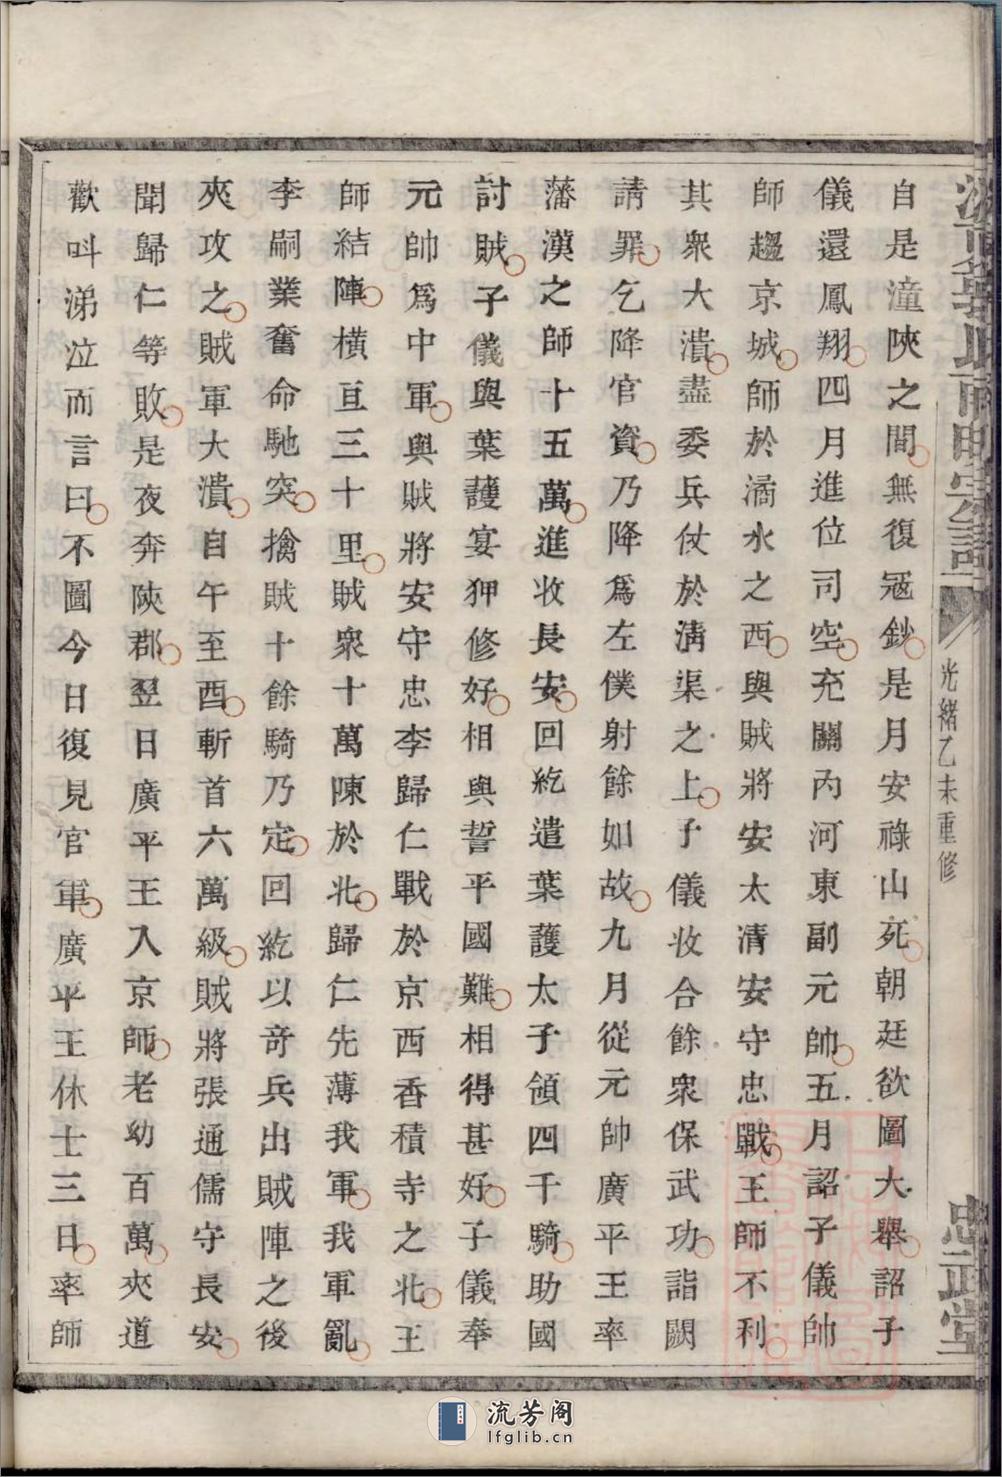 光緒乙未重修
忠正堂
自是潼陜之間無復寇鈔是月安祿山死朝廷欲圖大舉詔子
儀還鳳翔四月進位司空充關內河東副元帥五月詔子儀帥
師趨京城師於潏水之西與賊將安太清安守忠戰王師不利
其衆大潰盡委兵仗於淸渠之上子儀收合餘衆保武功詣闕
請罪乞降官資乃降爲左僕射餘如故九月從元帥廣平王率
藩漢之師十五萬進收長安回紇遣葉護太子領四千騎助國
討賊子儀與葉護宴狎修好相與誓平國難相得甚好子儀奉
元帥爲中軍與賊將安守忠李歸仁戰於京西香積寺之北王
師結陣橫亘三十里賊衆十萬陳於北歸仁先薄我軍我軍亂
李嗣業奮命馳突擒賊十餘騎乃定回紇以奇兵出賊陣之後
夾攻之賊軍大潰自午至酉斬首六萬級賊將張通儒守長安
聞歸仁等敗是夜奔陜郡翌日廣平王入京師老幼百萬夾道
歡叫涕泣而言曰不圖今日復見官軍廣平王休士三日率師
流芳阁
lfglib.cn